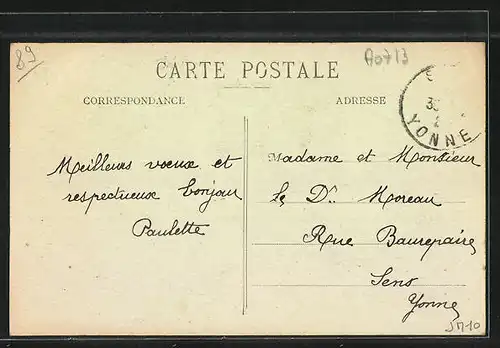 89
A0713
CARTE POSTALE
CORRESPONDANCE
ADRESSE
YONNE
Meilleurs voeux et
respectueux bonjour
Paulette
Madame et Monsieur
le Dr. Moreau
Rue Beaurepaire
Sens
Yonne